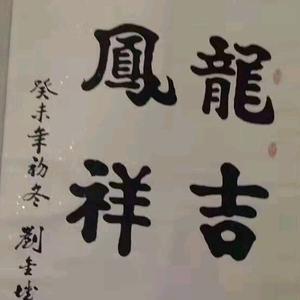 龍吉
鳳祥
癸未年初冬
劉奎